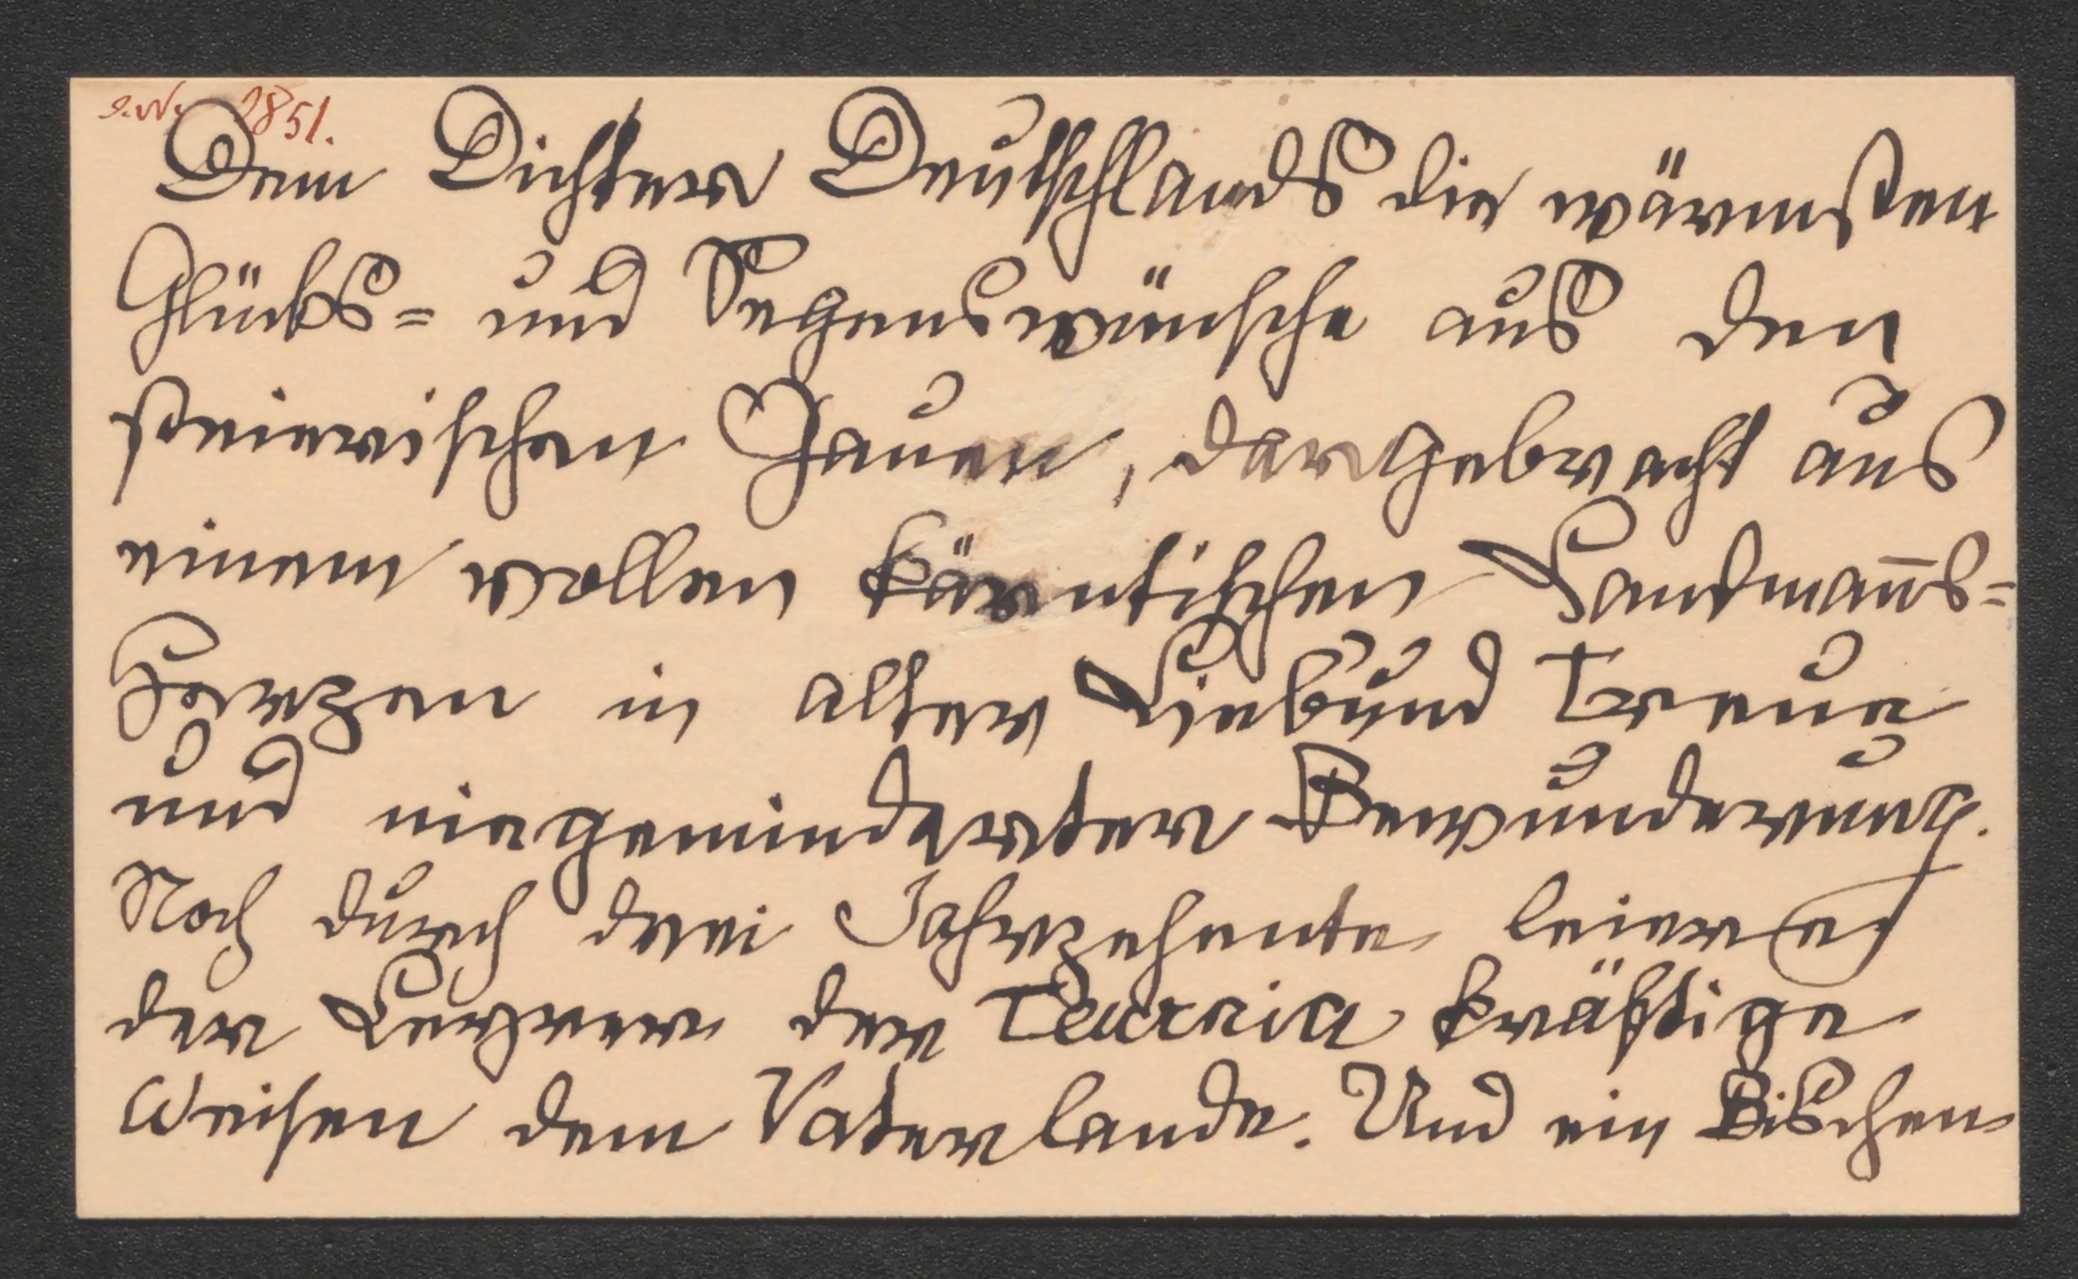 J.N. 2851.
Dem Dichter Deutschlands die wärmsten
Glücks- und Segenswünsche aus den
steierischen Gauen, dargebracht aus
einem vollen kärntischen Landmanns-
Herzen in alter Lieb und Treue
und niegeminderter Bewunderung.
Noch durch drei Jahrzehente leiere
der Leyrer der Teurnia kräftige
Weisen dem Vaterlande. Und ein Bischen